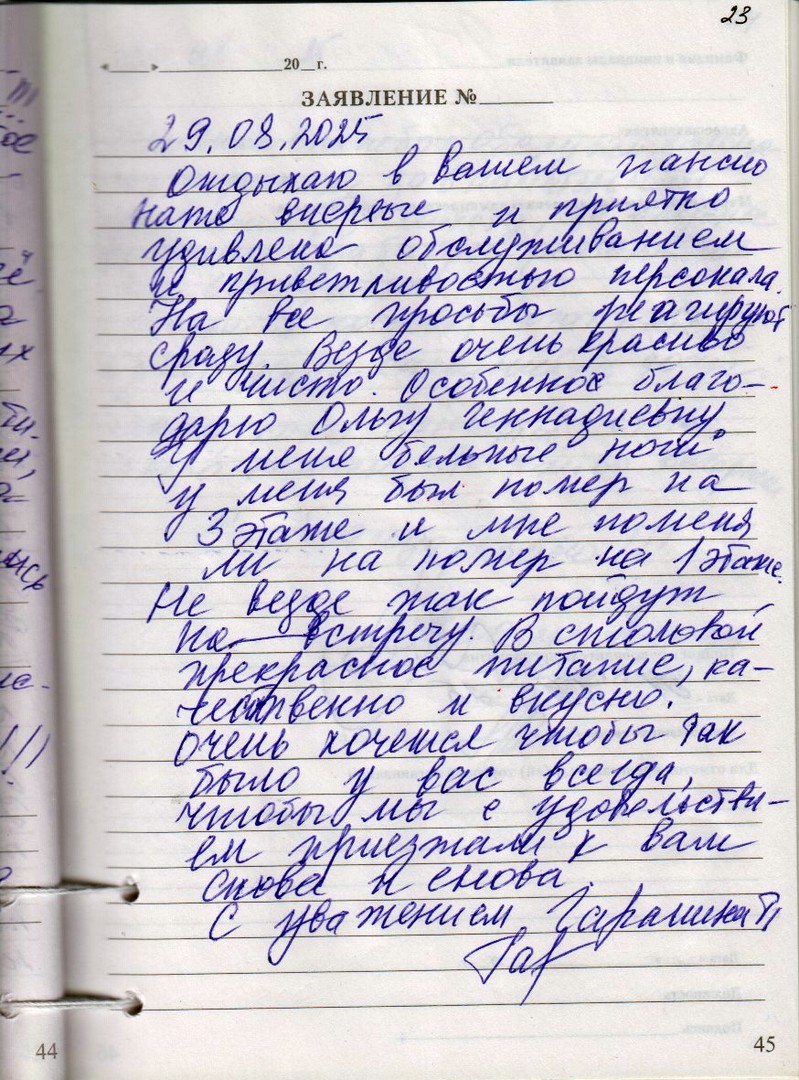 23
«___»____________20__г.
ЗАЯВЛЕНИЕ №______
29.08.2025
Отдыхаю в вашем пансио
нате впервые и приятно
удивлена обслуживанием
и приветливостью персонала.
На все просьбы реагируют
сразу. Везде очень красиво
и чисто. Особенное благо-
дарю Ольгу Геннадиевну
У меня больные ноги
у меня был номер на
3 этаже и мне поменя
ли на номер на 1 этаже.
Не везде так пойдут
на встречу. В столовой
прекрасное питание, ка-
чественно и вкусно.
Очень хочется чтобы так
было у вас всегда,
чтобы мы с удовольстви-
ем приезжали к вам
снова и снова.
С уважением
Гар
44
45